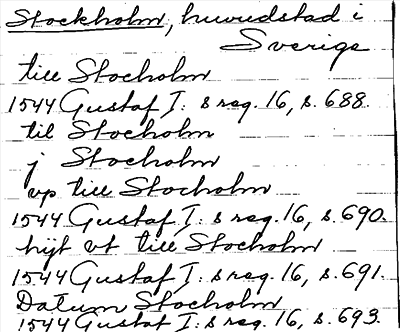 Stockholm, huvudstad i
Sverige
till Stocholm
1544 Gustaf I: s reg. 16, s. 688.
til Stocholm
j Stocholm
vp till Stocholm
1544 Gustaf I: s reg. 16, s. 690.
hijt vt till Stocholm
1544 Gustaf I: s reg. 16, s. 691.
Datum Stocholm
1544 Gustaf I: s reg. 16, s. 693.